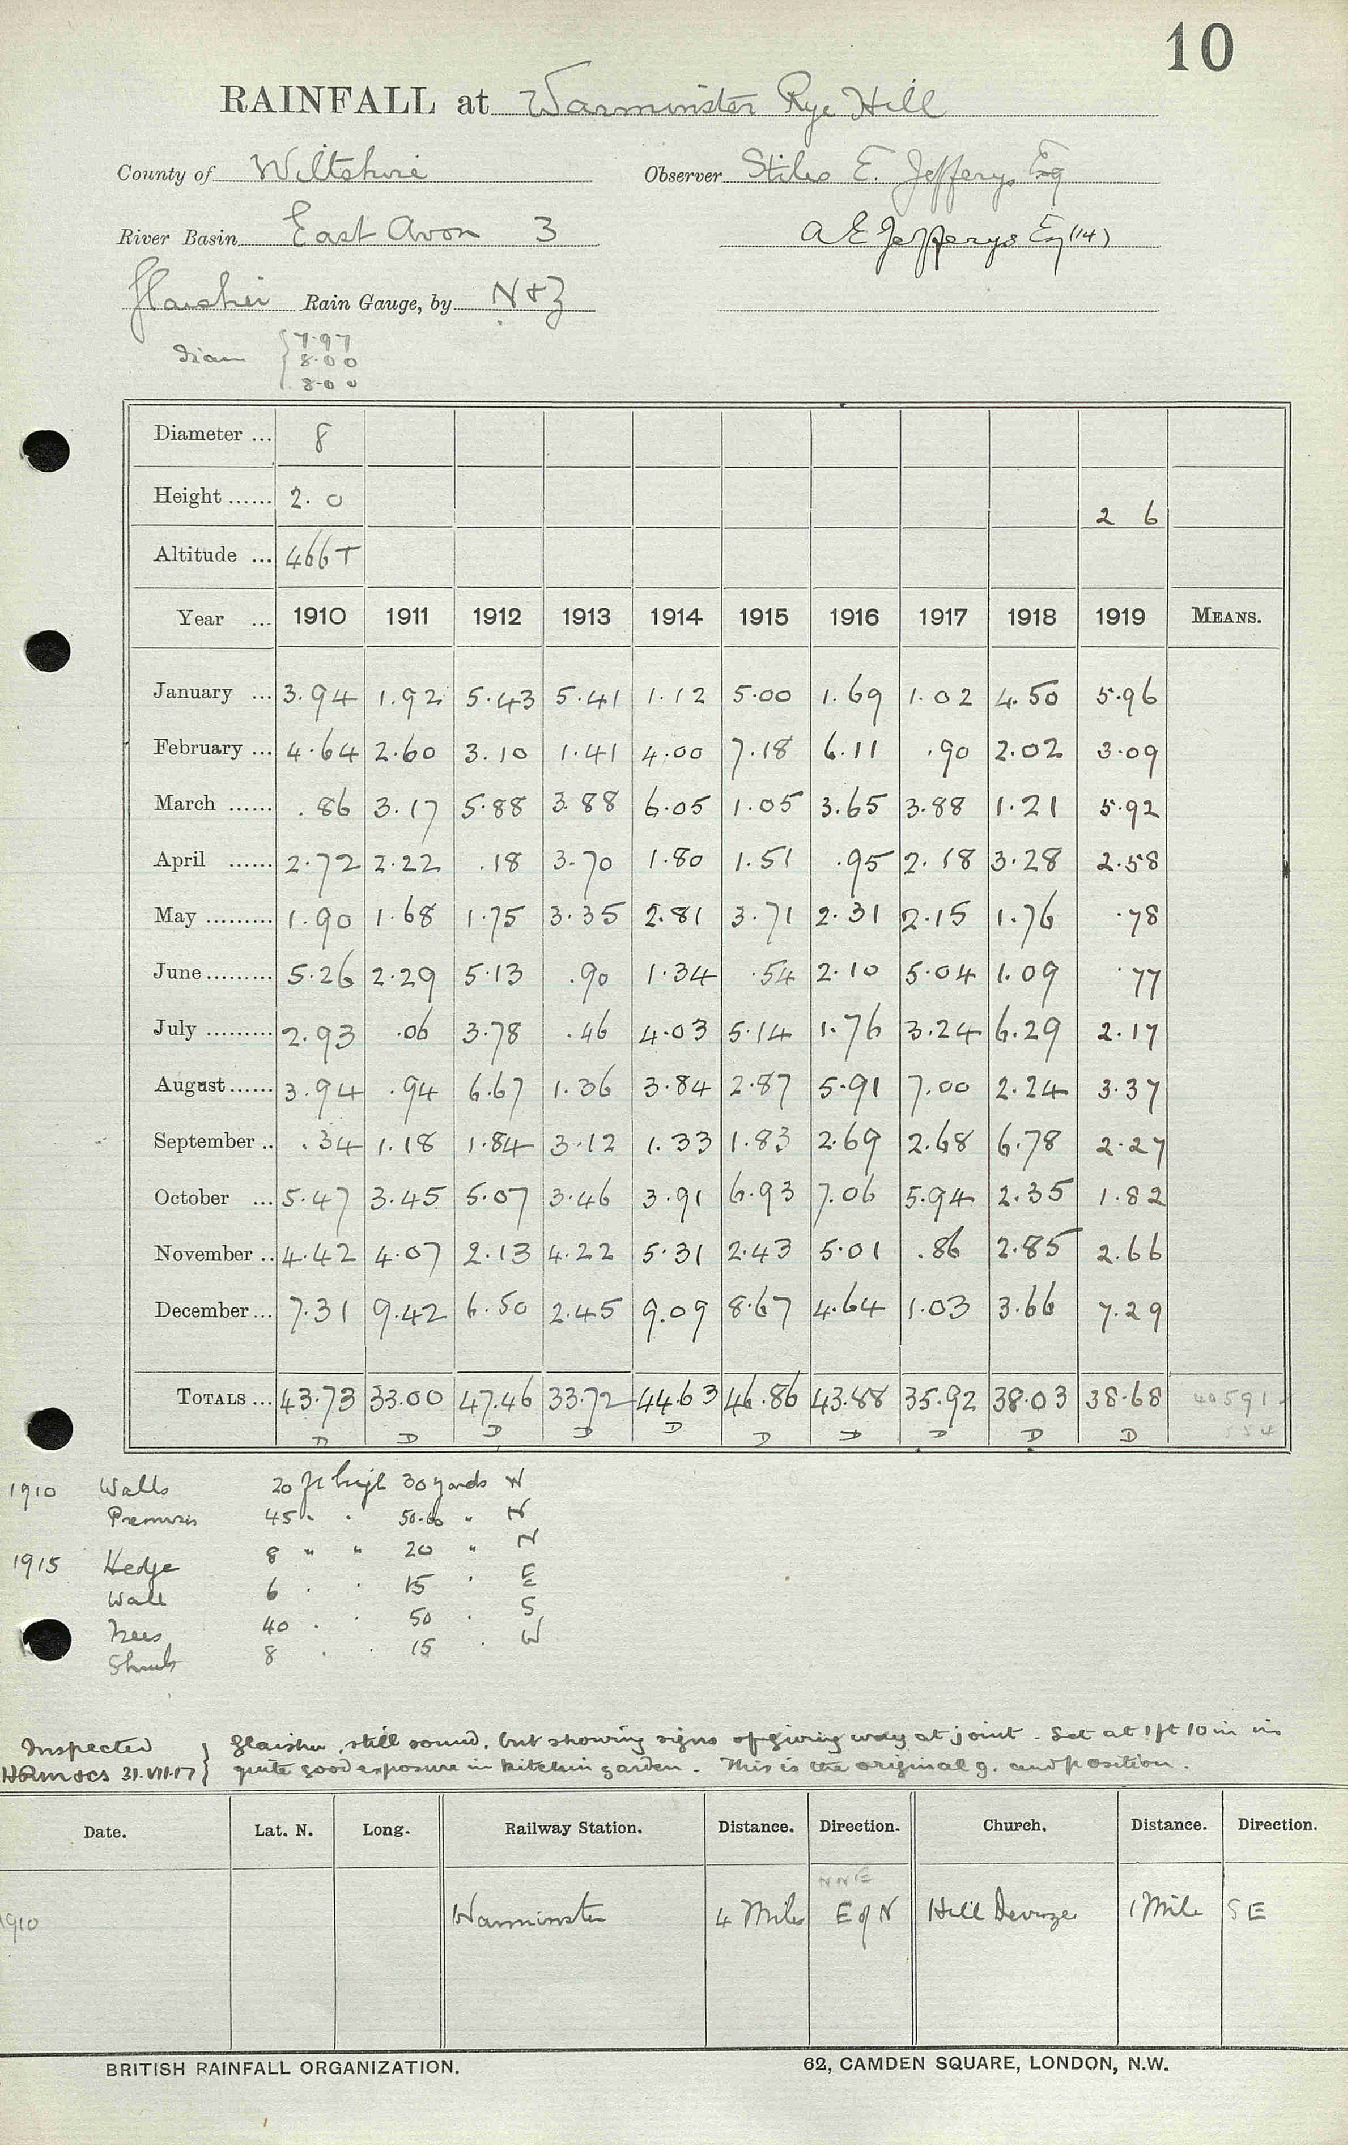 10
RAINFALL at Warminster Rye Hill
County of Wiltshire Observer Stiles E. Jefferys Esq
River Basin East Avon 3 A E Jefferys Esq (14)
Glaisher Rain Gauge, by N & Z
Diam { 7.97
8.00
8.00
Diameter ... 8
Height ...... 2. 0 2 6
Altitude ... 466 T
Year ... 1910 1911 1912 1913 1914 1915 1916 1917 1918 1919 MEANS.
January ... 3.94 1.92 5.43 5.41 1.12 5.00 1.69 1.02 4.50 5.96
February ... 4.64 2.60 3.10 1.41 4.00 7.18 6.11 .90 2.02 3.09
March ...... .86 3.17 5.88 3.88 6.05 1.05 3.65 3.88 1.21 5.92
April ...... 2.72 2.22 .18 3.70 1.80 1.51 .95 2.18 3.28 2.58
May ......... 1.90 1.68 1.75 3.35 2.81 3.71 2.31 2.15 1.76 .78
June ......... 5.26 2.29 5.13 .90 1.34 .54 2.10 5.04 1.09 .77
July ......... 2.93 .06 3.78 .46 4.03 5.14 1.76 3.24 6.29 2.17
August ...... 3.94 .94 6.67 1.36 3.84 2.87 5.91 7.00 2.24 3.37
September .. .34 1.18 1.84 3.12 1.33 1.83 2.69 2.68 6.78 2.27
October ... 5.47 3.45 5.07 3.46 3.91 6.93 7.06 5.94 2.35 1.82
November .. 4.42 4.07 2.13 4.22 5.31 2.43 5.01 .86 2.85 2.66
December ... 7.31 9.42 6.50 2.45 9.09 8.67 4.64 1.03 3.66 7.29
TOTALS ... 43.73 33.00 47.46 33.72 44.63 46.86 43.88 35.92 38.03 38.68 40591
D D D D D D D D D D
1910 Walls 20 ft high 30 yards N
Premises 45 " " 50-60 " N
1915 Hedge 8 " " 20 " N
Wall 6 " " 15 " E
Trees 40 " " 50 " S
Shrubs 8 " " 15 " W
Inspected } Glaisher, still sound, but showing signs of giving way at joint. Set at 1 ft 10 in in
31.VII.17 } quite good exposure in kitchen garden. This is the original g. and position.
Date. Lat. N. Long. Railway Station. Distance. Direction. Church. Distance. Direction.
NNE
1910 Warminster 4 Miles E of N Hill Deverge 1 Mile S E
BRITISH RAINFALL ORGANIZATION. 62, CAMDEN SQUARE, LONDON, N.W.